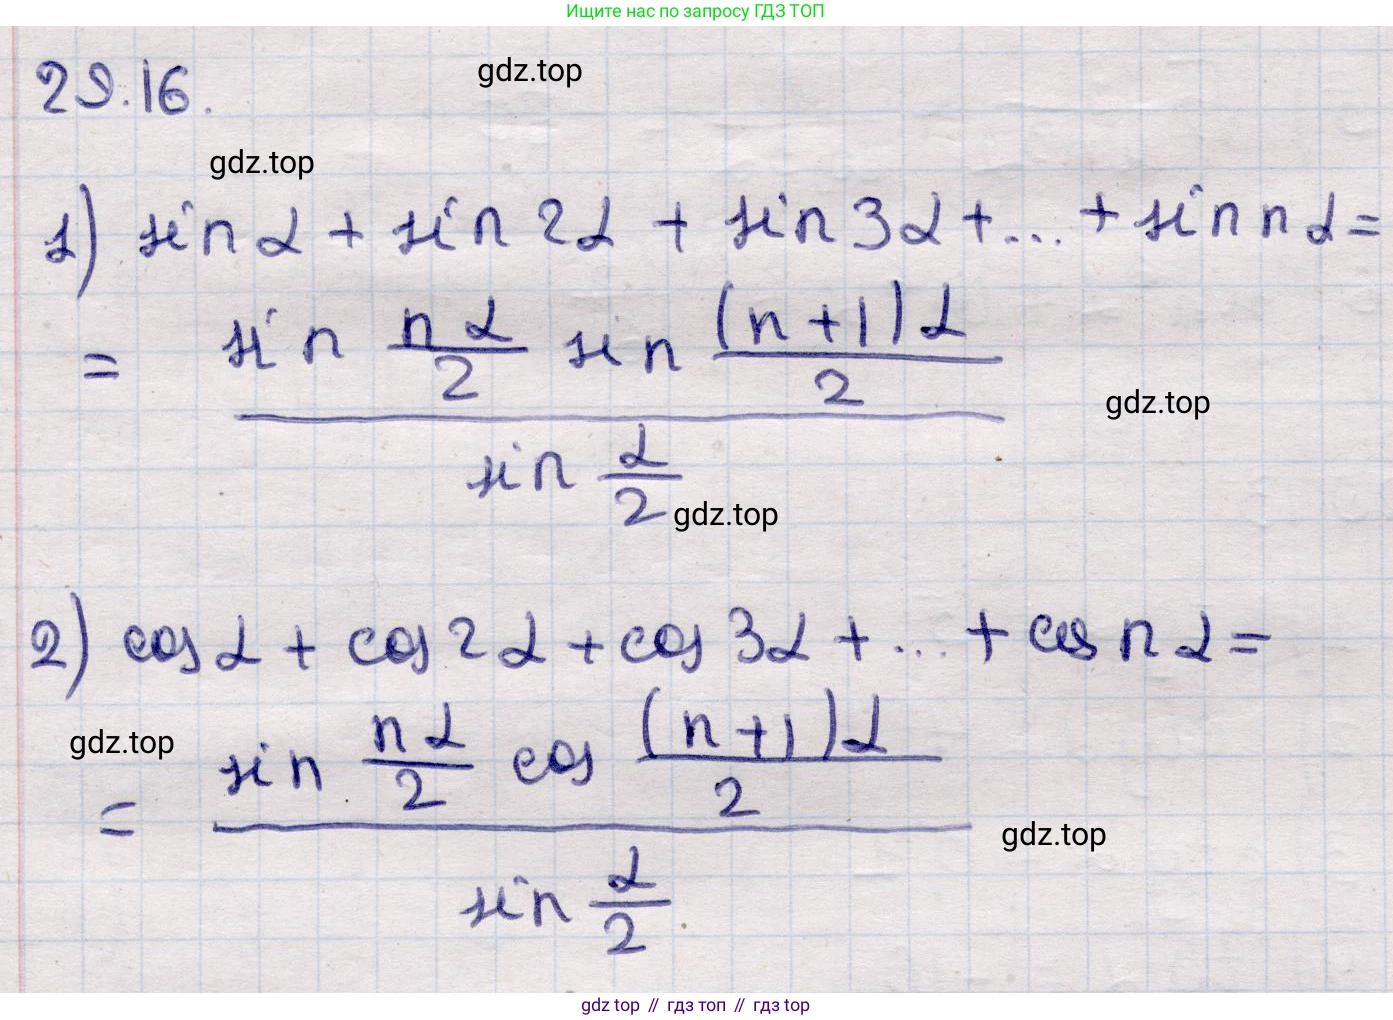 Ищите нас по запросу ГДЗ ТОП
29.16.
gdz.top
gdz.top
1) sin α + sin 2α + sin 3α + ... + sin nα =
= (sin nα/2 sin (n+1)α/2) / (sin α/2)
gdz.top
gdz.top
2) cos α + cos 2α + cos 3α + ... + cos nα =
gdz.top
= (sin nα/2 cos (n+1)α/2) / (sin α/2)
gdz.top
gdz top // гдз топ // гдз top